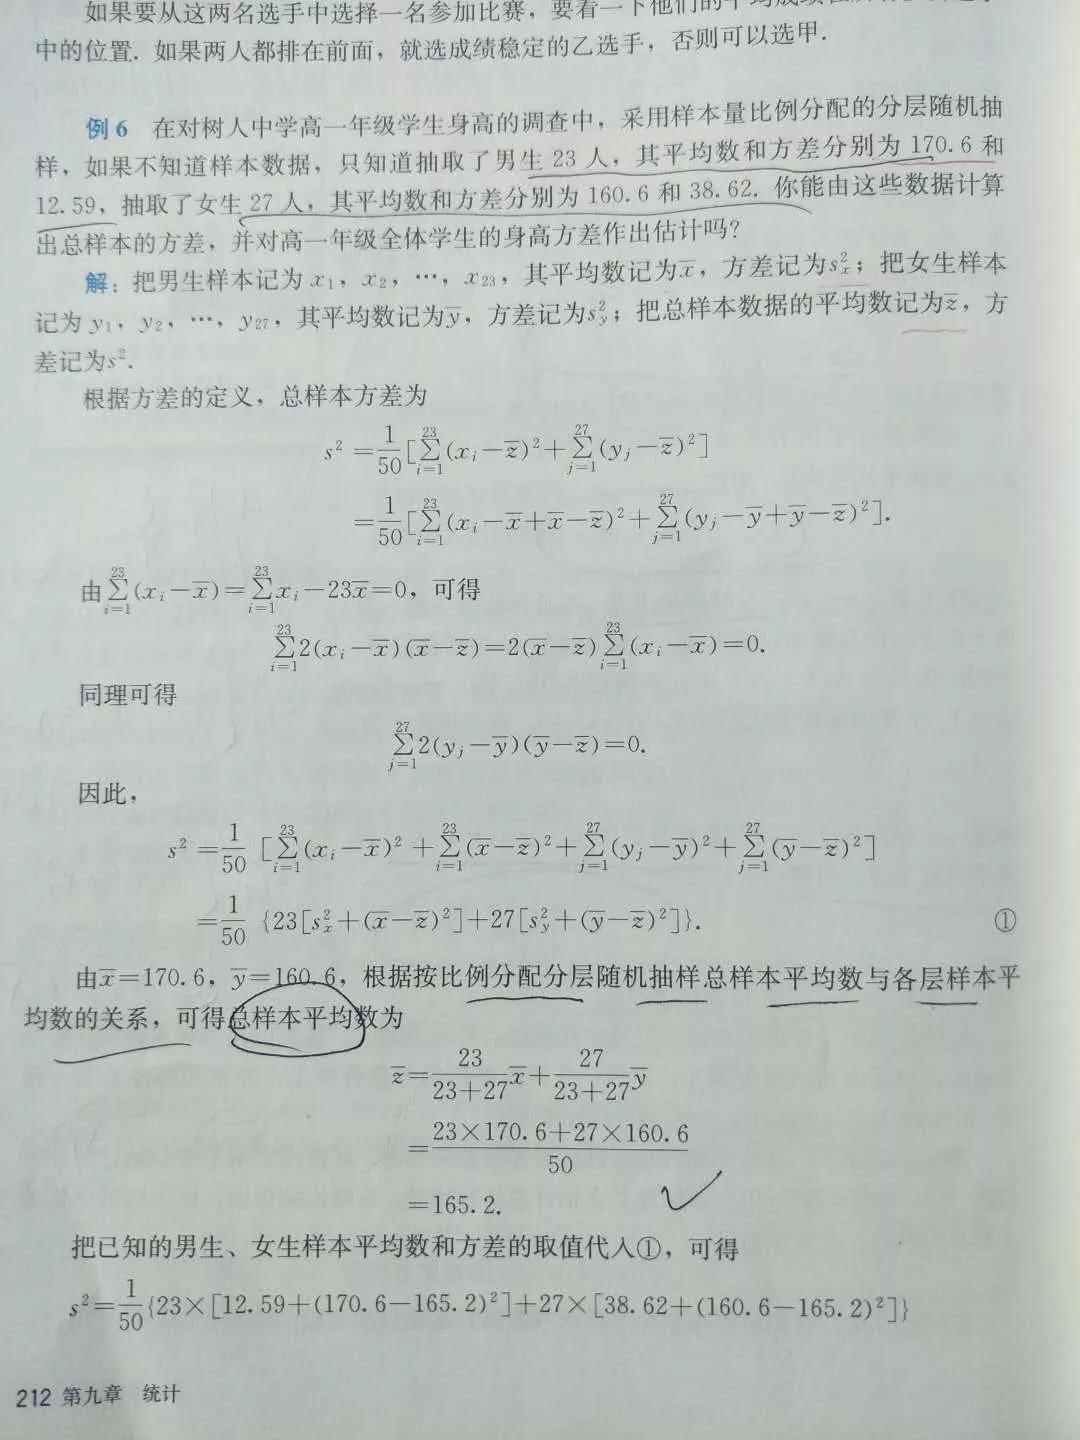 如果要从这两名选手中选择一名参加比赛，要看一下他们的平均成绩在
中的位置. 如果两人都排在前面，就选成绩稳定的乙选手，否则可以选甲.
例6 在对树人中学高一年级学生身高的调查中，采用样本量比例分配的分层随机抽
样，如果不知道样本数据，只知道抽取了男生23人，其平均数和方差分别为170.6和
12.59，抽取了女生27人，其平均数和方差分别为160.6和38.62. 你能由这些数据计算
出总样本的方差，并对高一年级全体学生的身高方差作出估计吗？
解：把男生样本记为x₁，x₂，…，x₂₃，其平均数记为x̄，方差记为sₓ²；把女生样本
记为y₁，y₂，…，y₂₇，其平均数记为ȳ，方差记为s_y²；把总样本数据的平均数记为z̄，方
差记为s².
根据方差的定义，总样本方差为
s²=1/50[∑_{i=1}^{23}(xᵢ−x̄+x̄−z̄)²+∑_{j=1}^{27}(yⱼ−z̄)²]
=1/50[∑_{i=1}^{23}(xᵢ−x̄+x̄−z̄)²+∑_{j=1}^{27}(yⱼ−ȳ+ȳ−z̄)²].
由∑_{i=1}^{23}(xᵢ−x̄)=∑_{i=1}^{23}xᵢ−23x̄=0，可得
∑_{i=1}^{23}2(xᵢ−x̄)(x̄−z̄)=2(x̄−z̄)∑_{i=1}^{23}(xᵢ−x̄)=0.
同理可得
∑_{j=1}^{27}2(yⱼ−ȳ)(ȳ−z̄)=0.
因此，
s²=1/50[∑_{i=1}^{23}(xᵢ−x̄)²+∑_{i=1}^{23}(x̄−z̄)²+∑_{j=1}^{27}(yⱼ−ȳ)²+∑_{j=1}^{27}(ȳ−z̄)²]
=1/50{23[sₓ²+(x̄−z̄)²]+27[s_y²+(ȳ−z̄)²]}. ①
由x̄=170.6，ȳ=160.6，根据按比例分配分层随机抽样总样本平均数与各层样本平
均数的关系，可得总样本平均数为
z̄=23/(23+27)x̄+27/(23+27)ȳ
=(23×170.6+27×160.6)/50
=165.2.
把已知的男生、女生样本平均数和方差的取值代入①，可得
s²=1/50{23×[12.59+(170.6−165.2)²]+27×[38.62+(160.6−165.2)²]}
212 第九章 统计